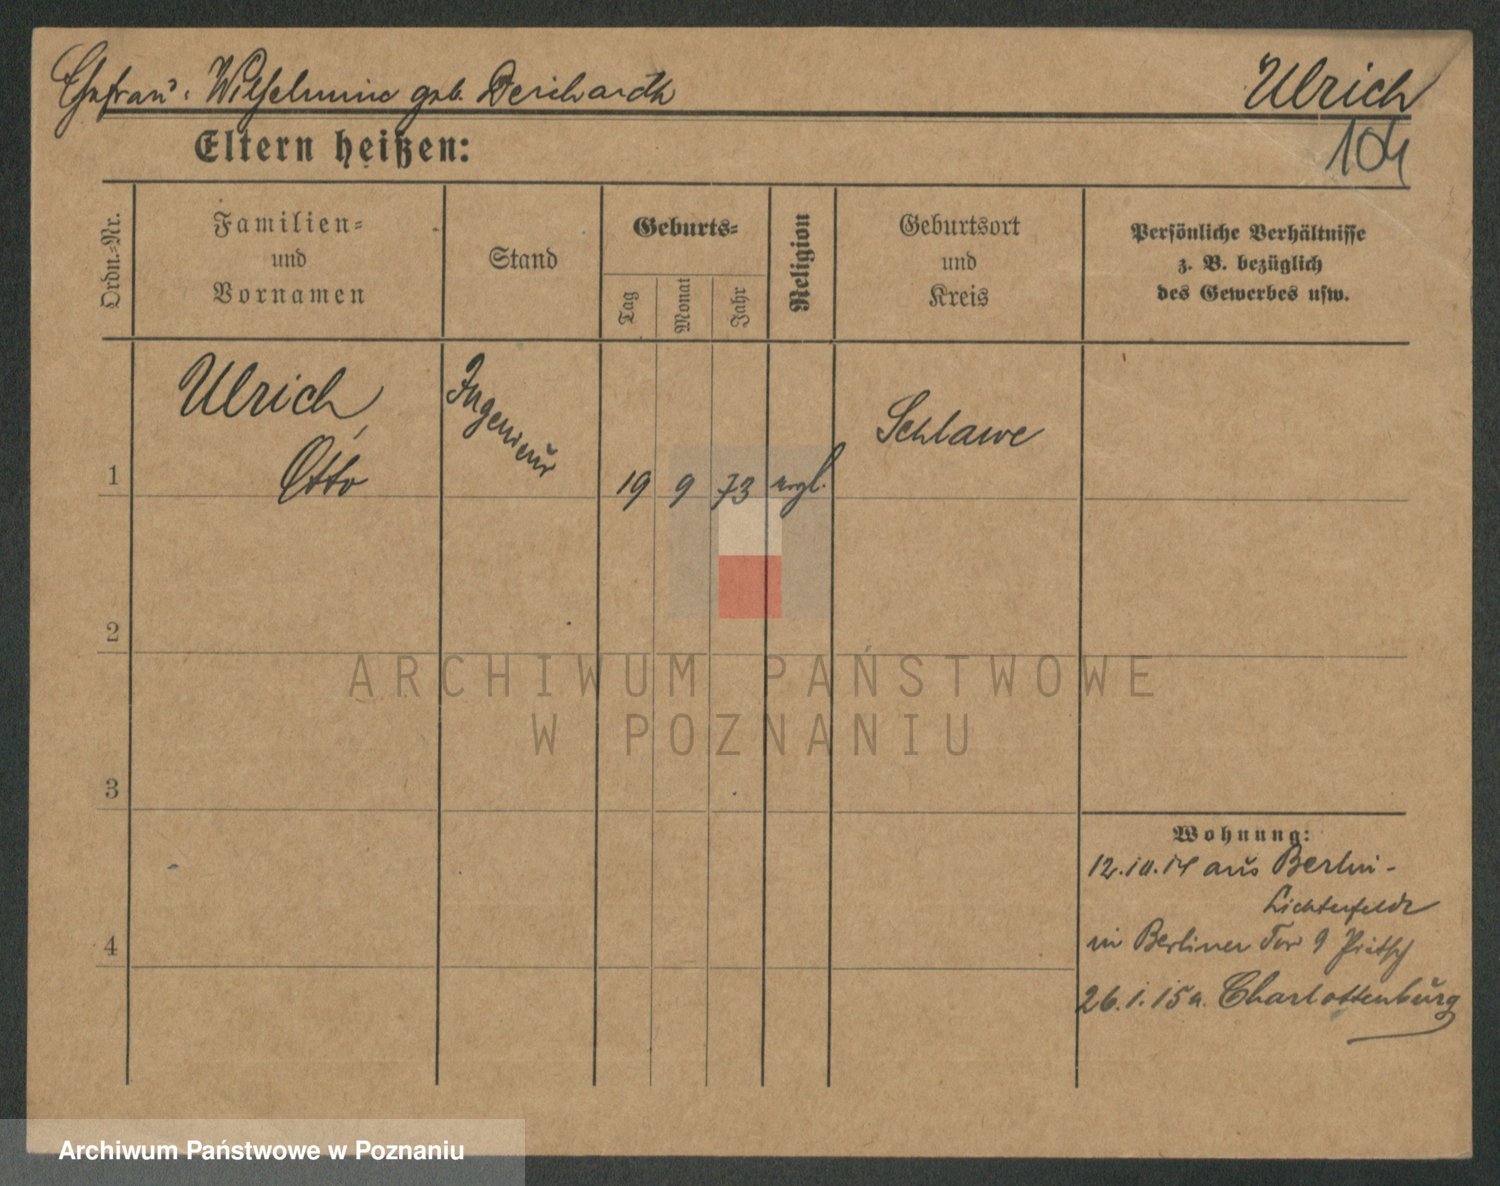 Ehefrau: Wilhelmine geb. Ulrich
104
Eltern heißen:
Ordn.-Nr.
Familien-
und
Vornamen
Stand
Geburts-
Tag
Monat
Jahr
Religion
Geburtsort
und
Kreis
Persönliche Verhältnisse
z. B. bezüglich
des Gewerbes usw.
1
Ulrich,
Otto
Ingenieur
19
9
73
evgl.
Schlawe
2
3
4
ARCHIWUM PAŃSTWOWE
W POZNANIU
Wohnung:
12.10.14 aus Berlin-
Lichterfelde
in Berliner Tor 9
26.1.15 n. Charlottenburg
Archiwum Państwowe w Poznaniu